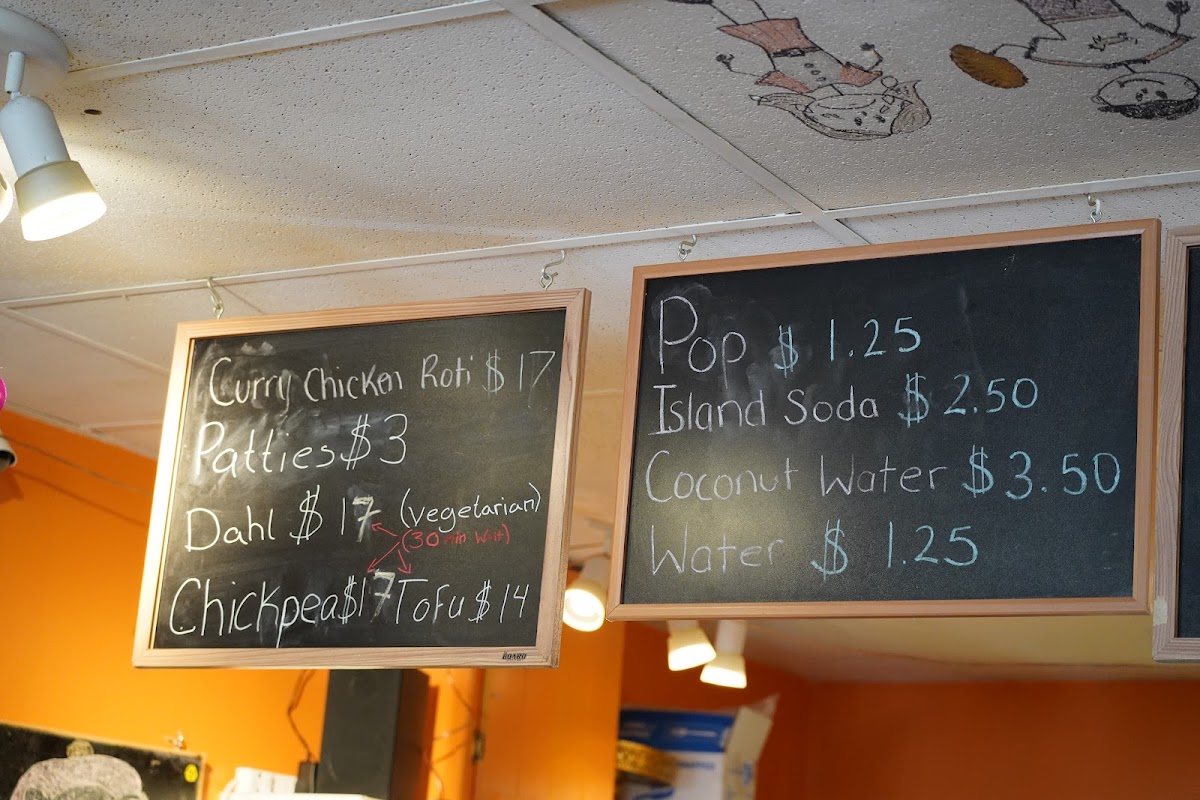 Curry Chicken Roti $17
Patties $3
Dahl $17 (vegetarian)
(30 min wait)
Chickpea $17 Tofu $14
BOARD
Pop $1.25
Island Soda $2.50
Coconut Water $3.50
Water $1.25